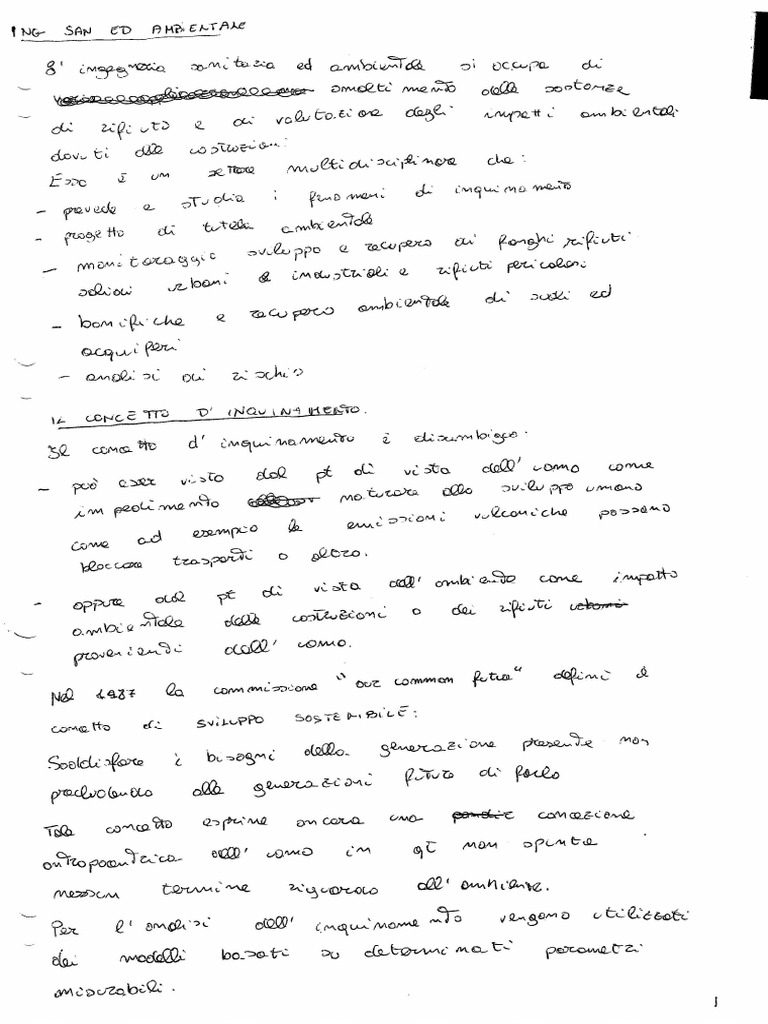 ING SAN ED AMBIENTALE
L' ingegneria sanitaria ed ambientale si occupa di
smaltimento delle sostanze
di rifiuto e di valutazione degli impatti ambientali
dovuti alle costruzioni.
Esso è un settore multidisciplinare che:
- prevede e studia i fenomeni di inquinamento
- progetto di tutela ambientale
- monitoraggio sviluppo e recupero di fanghi rifiuti
solidi urbani e industriali e rifiuti pericolosi
- bonifiche e recupero ambientale di suoli ed
acquiferi
- analisi di rischio
IL CONCETTO D'INQUINAMENTO.
Il concetto d'inquinamento è disambiguo.
- può esser visto dal pt di vista dell'uomo come
impedimento naturare allo sviluppo umano
come ad esempio le emissioni vulcaniche possono
bloccare trasporti o altro.
- oppure dal pt di vista dell'ambiente come impatto
ambientale delle costruzioni o dei rifiuti urbani
provenienti dall'uomo.
Nel 1987 la commissione "our common futre" definì il
concetto di SVILUPPO SOSTENIBILE:
Soddisfare i bisogni della generazione presente non
precludendo alle generazioni future di farlo
Tale concetto esprime ancora una concezione
antropocentrica dell'uomo in qt non spunta
nessun termine riguardo all'ambiente.
Per l'analisi dell'inquinamento vengono utilizzati
dei modelli basati su determinati parametri
misurabili.
1